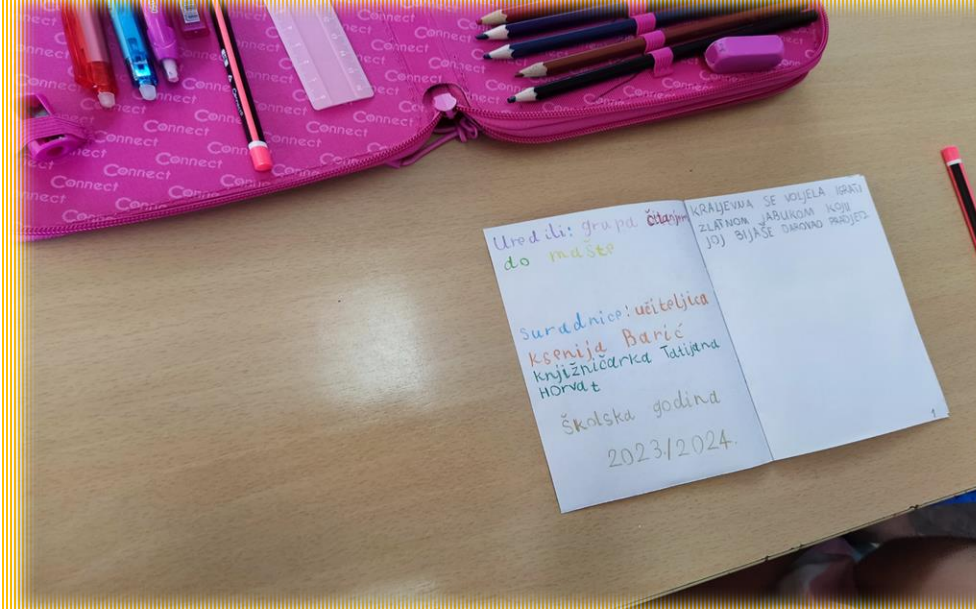 Uredili: grupa čitanjem
do mašte
suradnice: učiteljica
Ksenija Barić
knjižničarka Tatijana
Horvat
školska godina
2023./2024.
KRALJEVNA SE VOLJELA IGRATI
ZLATNOM JABUKOM KOJU
JOJ BIJAŠE DAROVAO
1
Connect